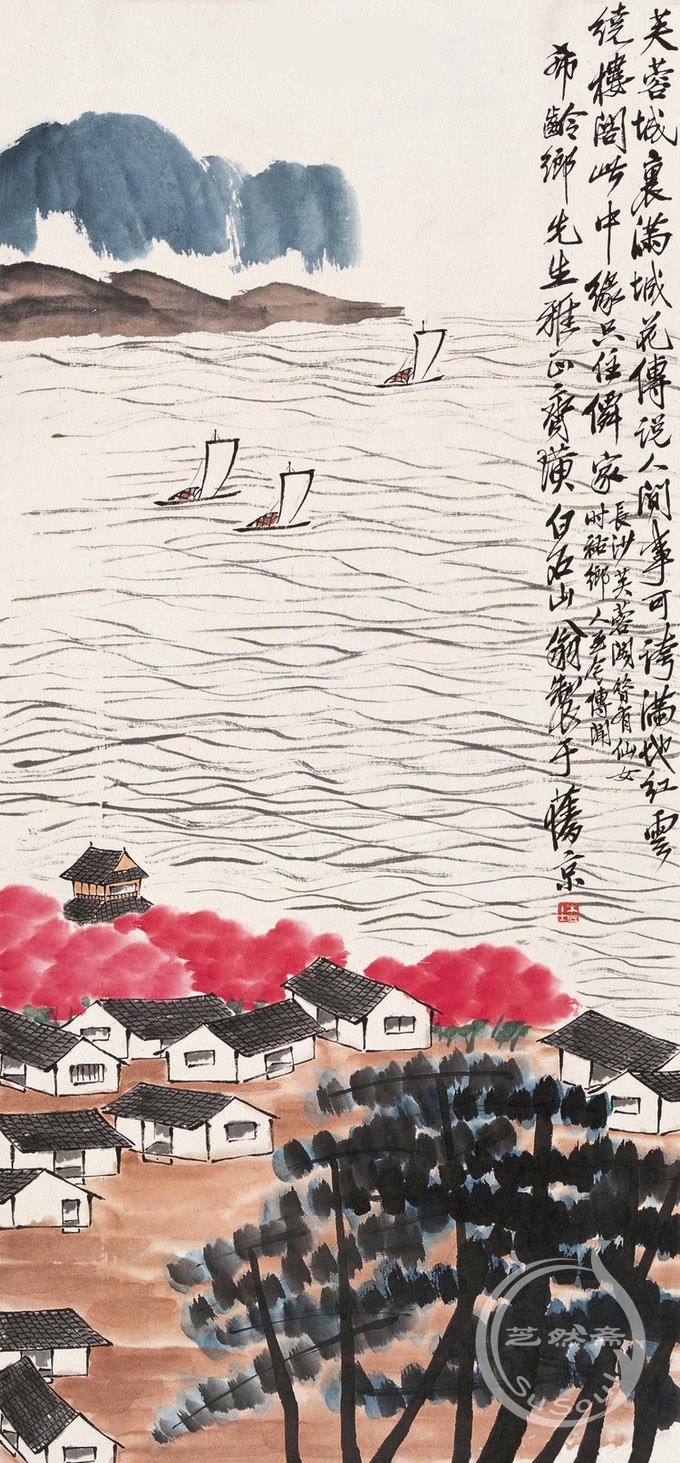 芙蓉城裏滿城花傳説人間事可誇滿地紅雲
繞樓閣此中緣只住僊家
長沙芙蓉閣曾有仙女
時站鄉人至今傳聞
希齡鄉先生雅正齊璜白石山翁製于舊京
芝然斋
SuSoul